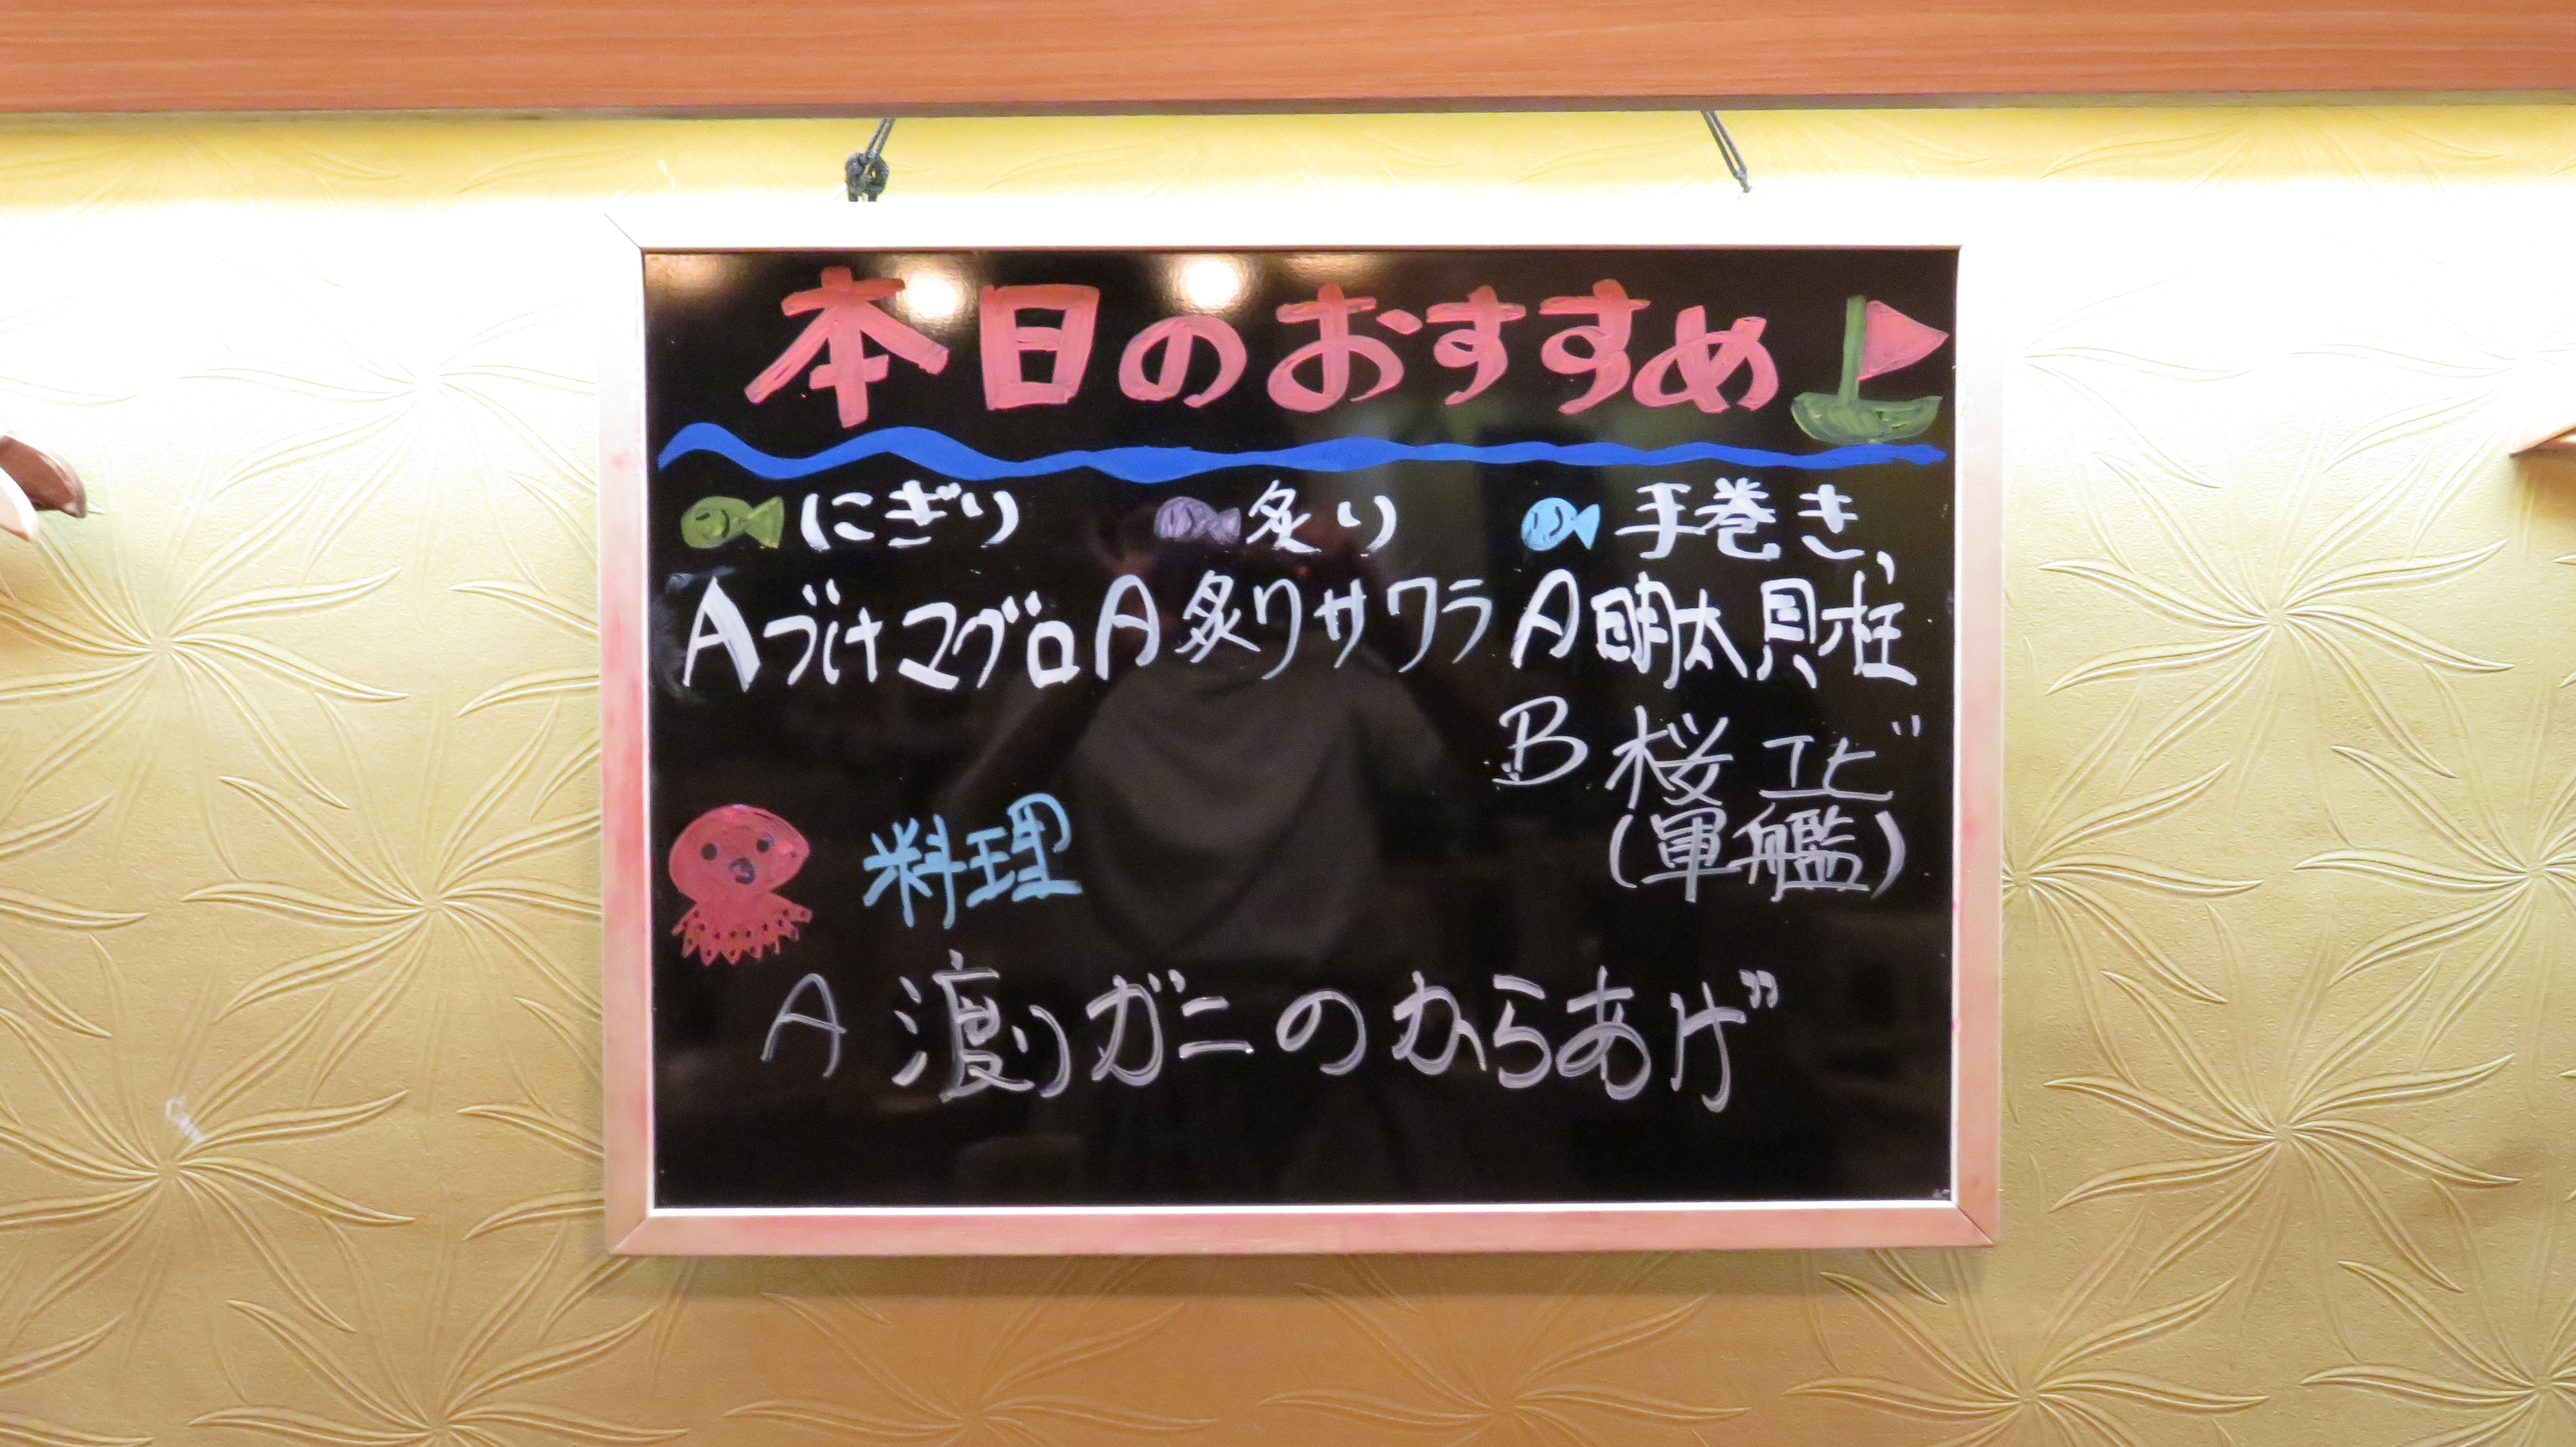 本日のおすすめ
にぎり 炙り 手巻き
Aづけマグロ A炙りサワラ A明太貝柱
B桜エビ
(軍艦)
料理
A 渡りガニのからあげ